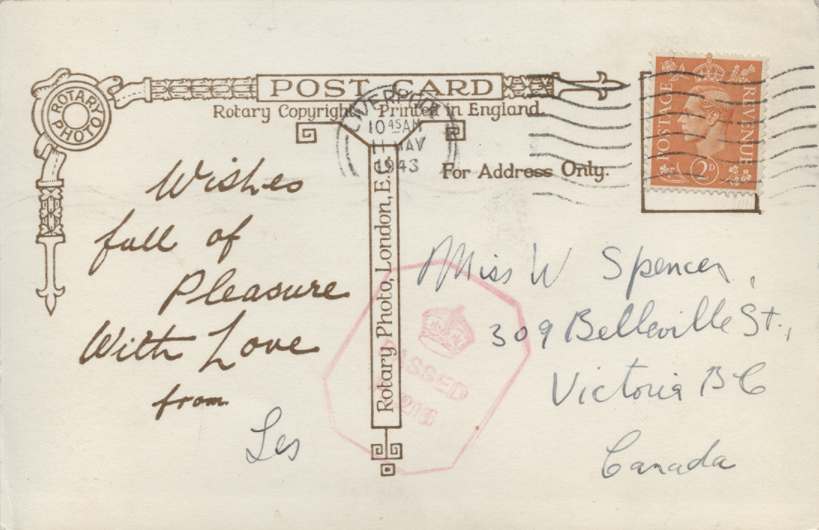 POST CARD
Rotary Copyright Printed in England.
ROTARY
PHOTO
LIVERPOOL
10 45 AM
MAY
1943
For Address Only.
POSTAGE
REVENUE
2D
Wishes
full of
Pleasure
With Love
from
Les
Rotary Photo, London, E.C.
Miss W Spencer,
309 Belleville St.,
Victoria BC
Canada
PASSED